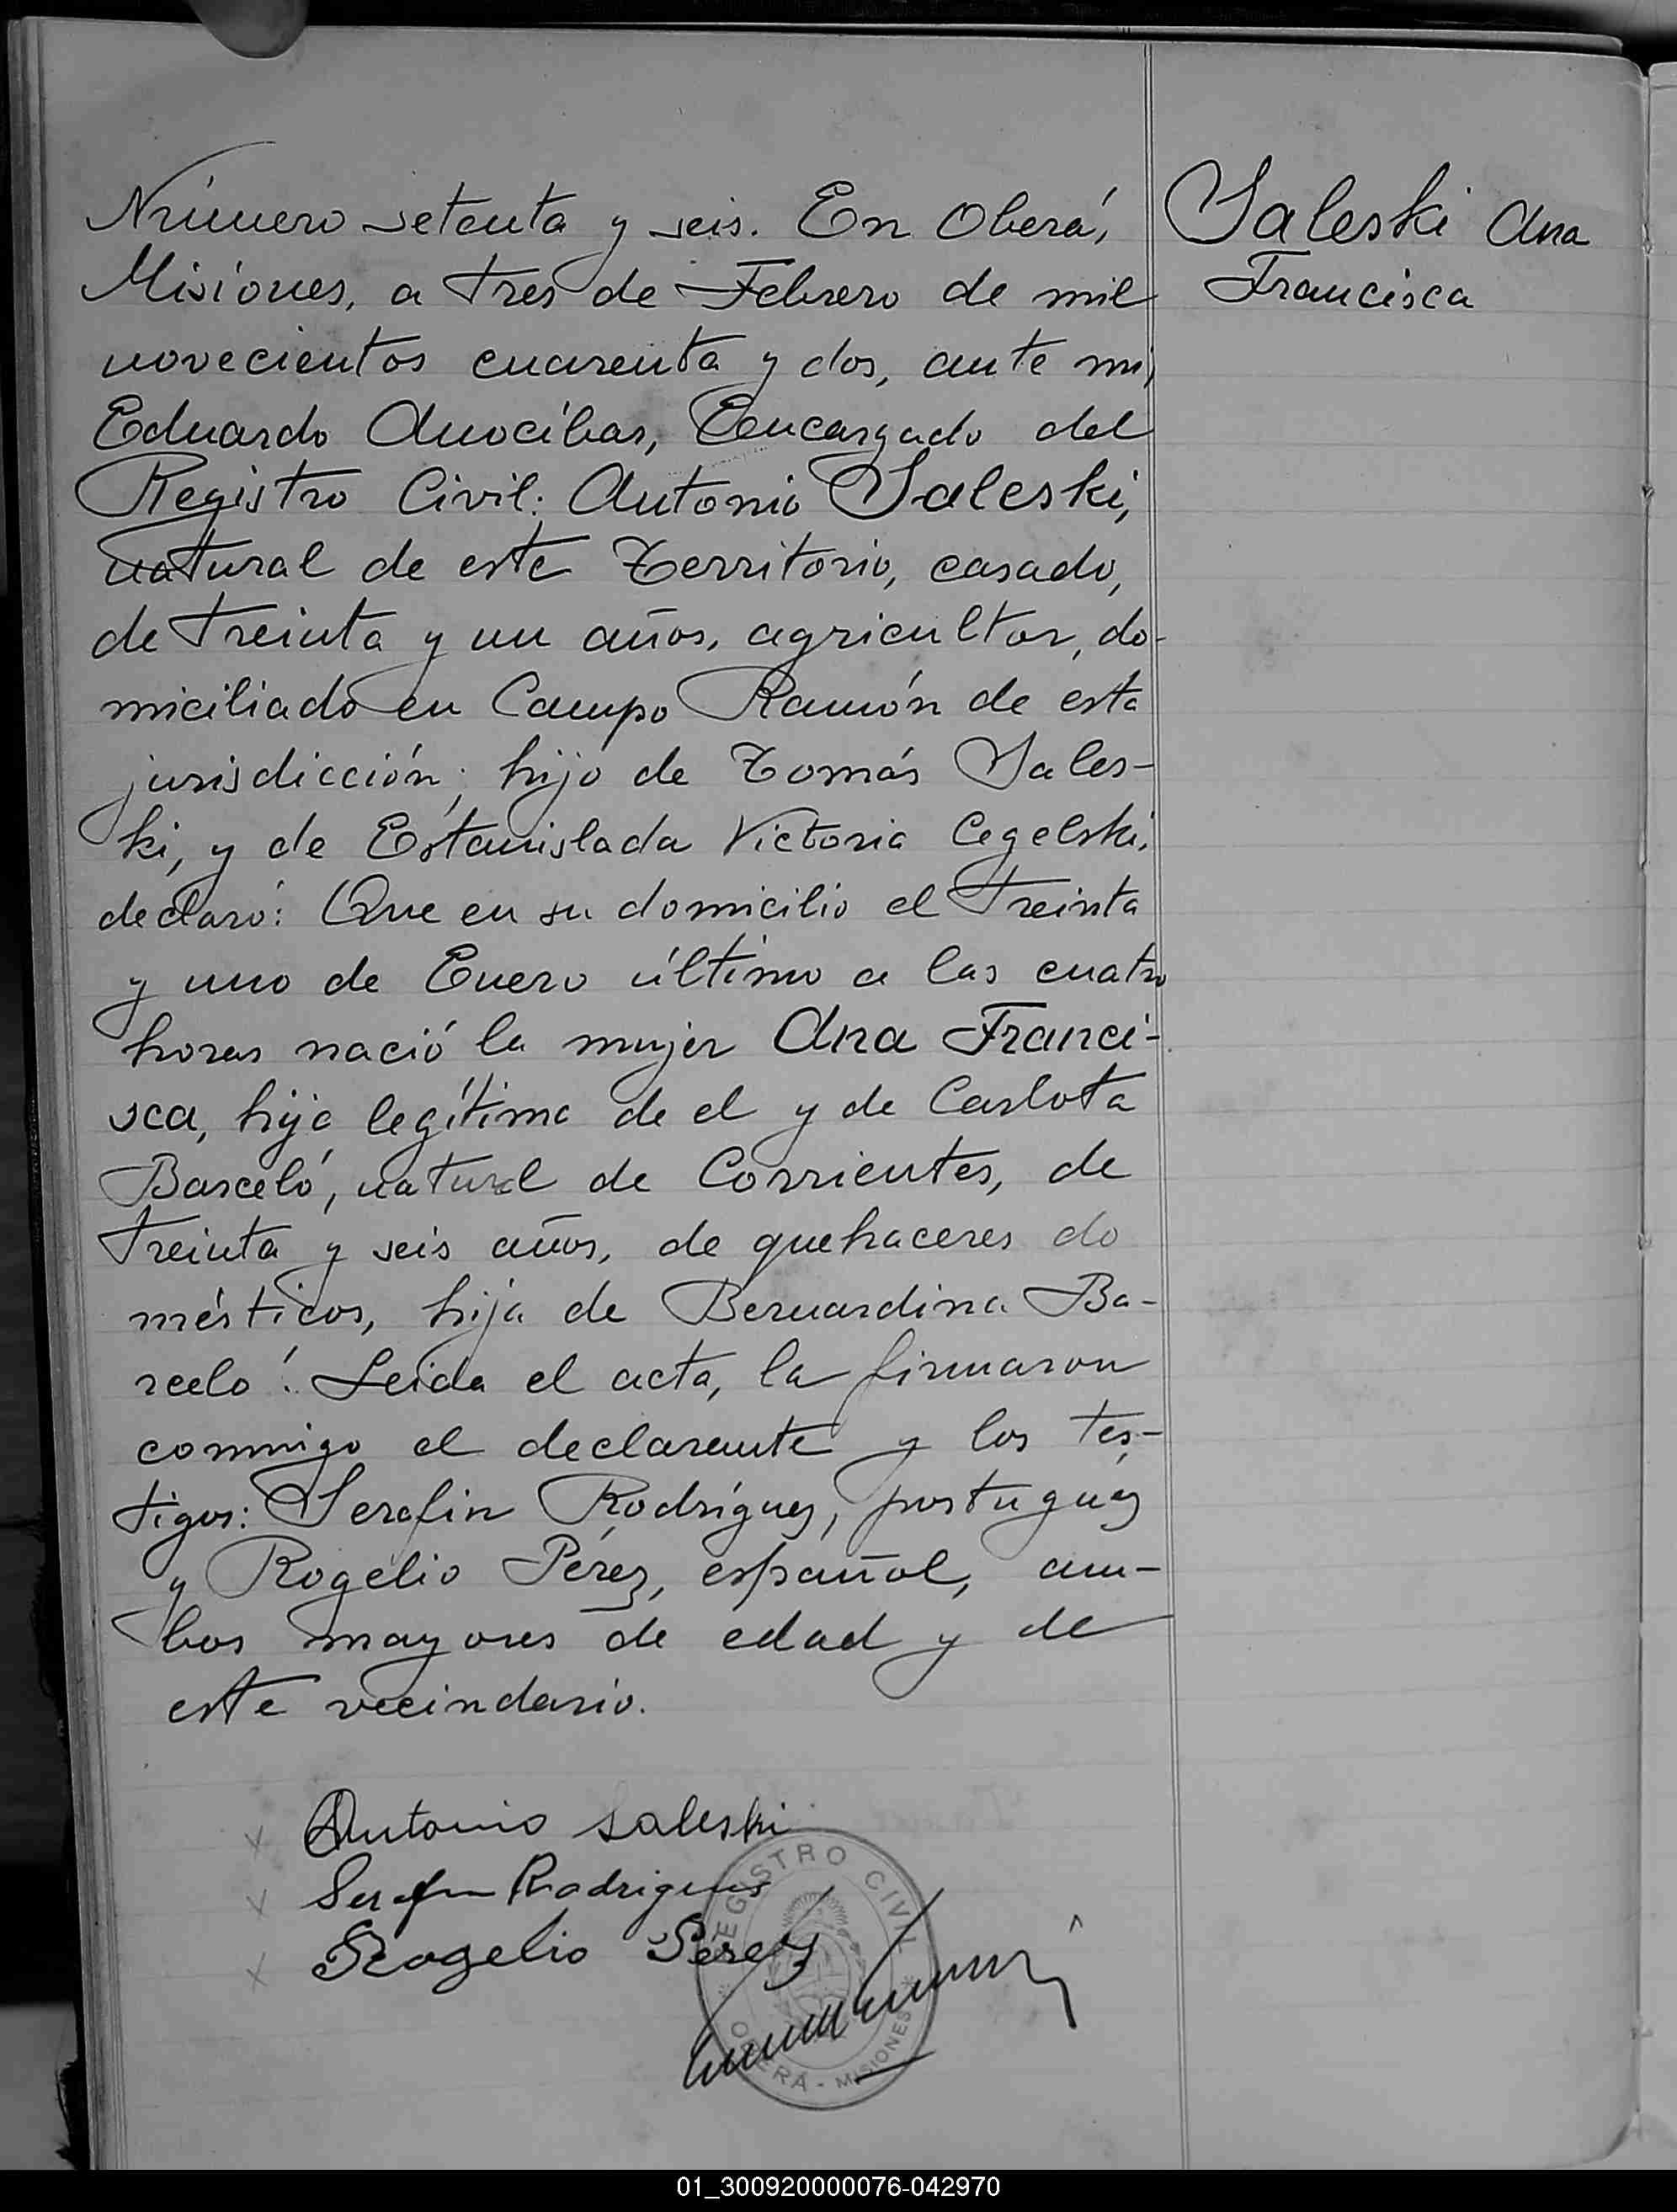 Número setenta y seis. En Oberá,
Misiones, a tres de Febrero de mil
novecientos cuarenta y dos, ante mi,
Eduardo Anocíbar, Encargado del
Registro Civil: Antonio Saleski,
natural de este Territorio, casado,
de treinta y un años, agricultor, do-
miciliado en Campo Ramón de esta
jurisdicción; hijo de Tomás Sales-
ki, y de Estanislada Victoria Cegelski,
declaró: Que en su domicilio el treinta
y uno de Enero último a las cuatro
horas nació la mujer Ana Franci-
sca, hija legítima de el y de Carlota
Barceló, natural de Corrientes, de
treinta y seis años, de quehaceres do
mésticos, hija de Bernardina Ba-
rceló. Leida el acta, la firmaron
conmigo el declarante y los tes-
tigos: Serafin Rodríguez, portuguéz
y Rogelio Pérez, español, am-
bos mayores de edad y de
este vecindario.
Saleski Ana
Francisca
Antonio Saleski
Serafin Rodrigues
Rogelio Pérez
REGISTRO CIVIL
OBERÁ - MISIONES
01_300920000076-042970